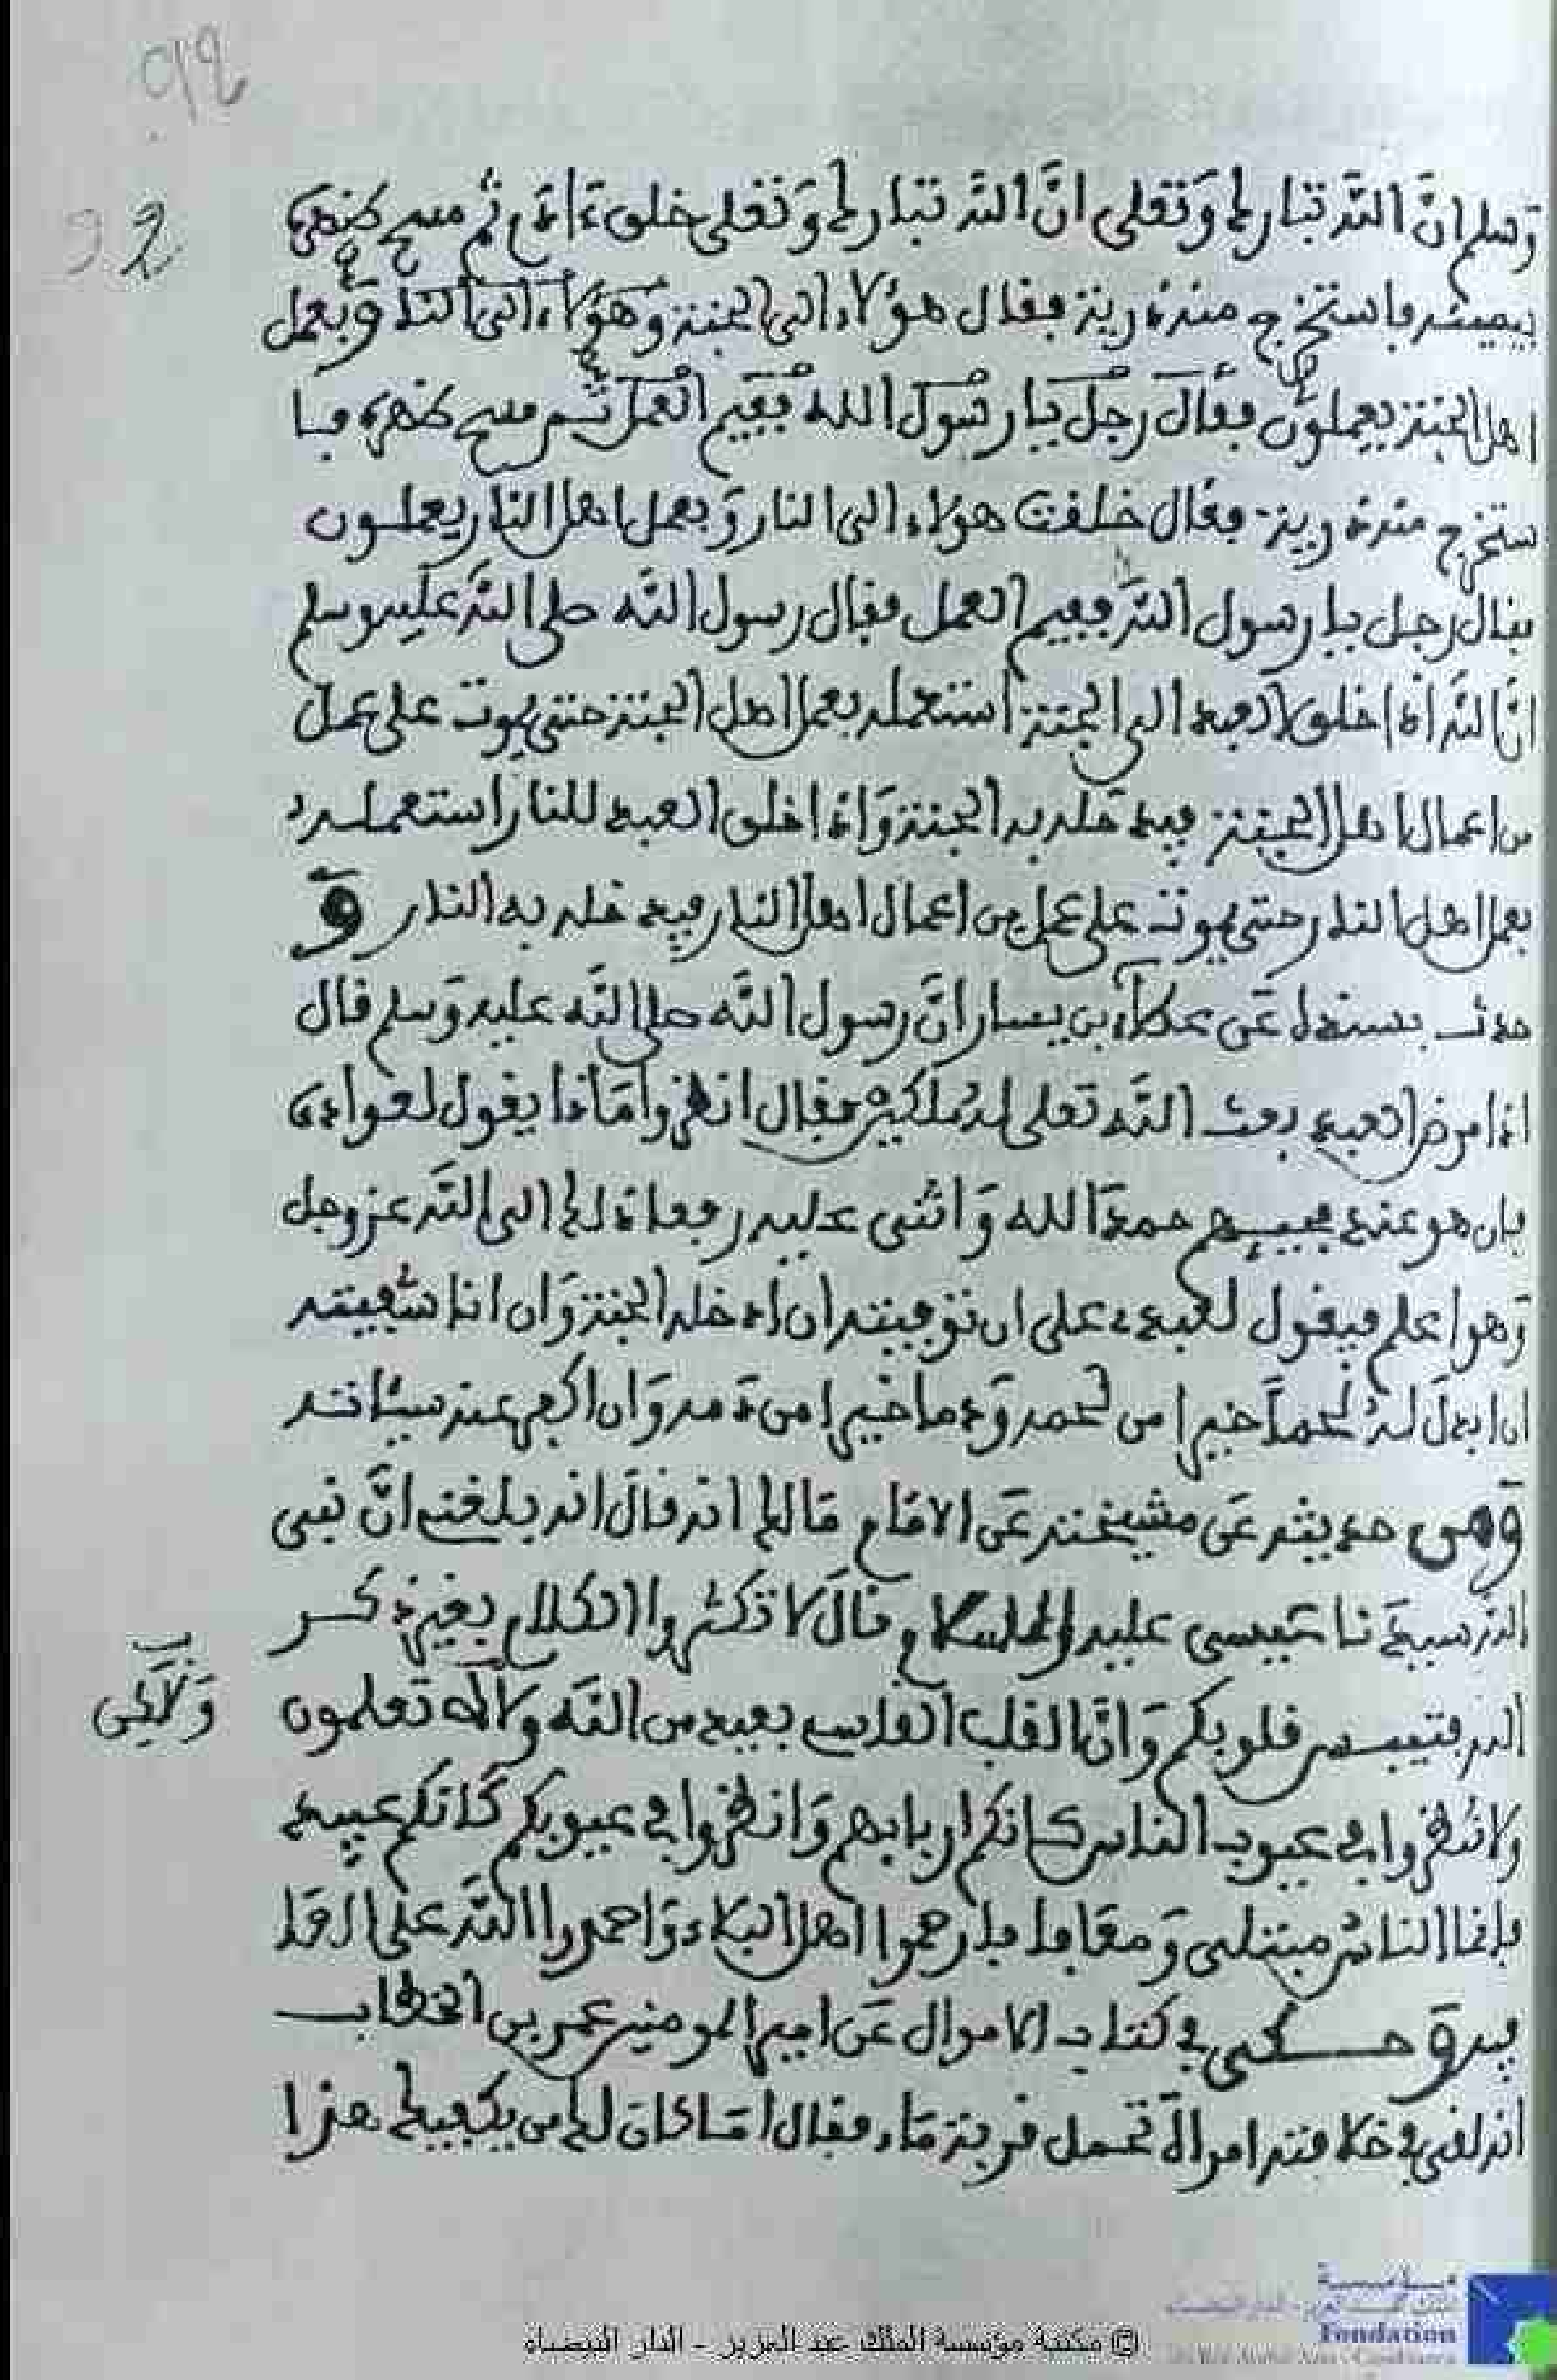 92
92
وسلم ان الله تبارك وتعلى ان الله تبارك وتعلى خلق ءادم ثم مسح ظهره
بيمينه فاستخرج منه ذرية فقال هؤلاء الى الجنة وهؤلاء الى النار وبعمل
اهل الجنة يعملون فقال رجل يا رسول الله ففيم العمل ثم مسح ظهره فا
ستخرج منه ذرية فقال خلقت هولاء الى النار وبعمل اهل النار يعملون
فقال رجل يا رسول الله ففيم العمل فقال رسول الله صلى الله عليه وسلم
ان الله اذا خلق العبد الى الجنة استعمله بعمل اهل الجنة حتى يموت على عمل
من اعمال اهل الجنة فيدخله به الجنة واذا خلق العبد للنار استعمله
بعمل اهل النار حتى يموت على عمل من اعمال اهل النار فيدخله به النار و
حدث بسنده عن عطاء بن يسار ان رسول الله صلى الله عليه وسلم قال
اذا مرض العبد بعث الله تعلى له ملكين فقال انظروا ماذا يقول لعواده
فان هو عند مجيبهم حمد الله واثنى عليه رفعا ذلك الى الله عز وجل
وهو اعلم فيقول لعبدي على ان توفيته ان ادخله الجنة وان انا شفيته
ان ابدل له لحما خيرا من لحمه ودما خيرا من دمه وان اكفر عنه سيئاته
ومن حديثه عن مشيخته عن الامام مالك انه قال انه بلغني ان نبي
الله سيدنا عيسى عليه السلام قال لا تكثروا الكلام بغير ذكر
الله فتقسى قلوبكم وان القلب القاسي بعيد من الله ولا تعلمون
ولكن
ولا تنظروا في عيوب الناس كانكم ارباب وانظروا في عيوبكم كانكم عبيد
فانما الناس مبتلى ومعافا فارحموا اهل البلاء واحمدوا الله على العا
فية وحكى في كتاب الاموال عن امير المومنين عمر بن الخطاب
انه لقي في خلافته امراة تحمل قربة ماء فقال اما كان لك من يكفيك هذا
© مكتبة مؤسسة الملك عبد العزيز - الدار البيضاء
مؤسسة
Fondation